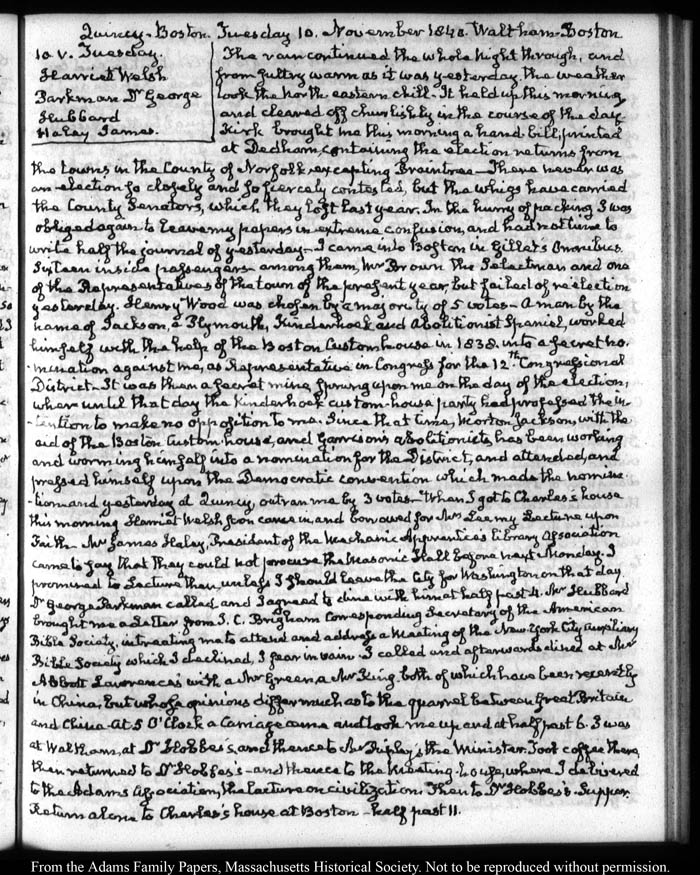 Quincy - Boston. Tuesday 10. November 1840. Waltham - Boston
10. V. Tuesday.
Harriet Welsh
Parkman Dr George
Hubbard
Haley James.
The rain continued the whole night through, and
from sultry warm as it was yesterday, the weather
took the north-eastern chill. It held up this morning
and cleared off churlishly in the course of the day.
Kirk brought me this morning a hand bill, printed
at Dedham, containing the election returns from
the towns in the County of Norfolk, excepting Braintree - There never was
an election so closely and so fiercely contested, but the whigs have carried
the County Senators, which they lost last year. In the hurry of packing I was
obliged again to leave my papers in extreme confusion, and had not time to
write half the journal of yesterday - I came into Boston in Gillet's Omnibus.
Sixteen inside passengers - among them, Mr Brown the Selectman and one
of the Representatives of the town of the present year, but failed of re-election
yesterday. Henry Wood was chosen by a majority of 5 votes - A man by the
name of Jackson, a Plymouth, Kinderhook and Abolitionist Spaniel, worked
himself with the help of the Boston Custom house in 1838 into a secret no-
-mination against me, as Representative in Congress for the 12th Congressional
District - It was then a secret mine, sprung upon me on the day of the election,
when until that day the Kinderhook custom-house party had professed the in-
-tention to make no opposition to me. Since that time, Morton Jackson, with the
aid of the Boston Custom house, and Garrison's abolitionists has been working
and worming himself into a nomination for the District, and attended, and
pressed himself upon the Democratic convention which made the nomina-
-tion and yesterday at Quincy, outran me by 3 votes - When I got to Charles's house
this morning Harriet Welsh soon came in, and borrowed for Mrs Lee my Lecture upon
Faith - Mr James Haley, President of the Mechanic Apprentices Library Association
came to say that they could not procure the Masonic Hall before next Monday. I
promised to Lecture then, unless I should leave the City for Washington on that day.
Dr George Parkman called, and I agreed to dine with him at half past 4. Mr Hubbard
brought me a Letter from J. C. Brigham Corresponding Secretary of the American
Bible Society, intreating me to attend and address a Meeting of the New-York City auxiliary
Bible Society which I declined, I fear in vain. I called and afterwards dined at Mr
Abbott Lawrence's with a Mr Green, a Mr King both of which have been recently
in China, but whose opinions differ much as to the quarrel between Great Britain
and China. At 5 O'Clock a Carriage came and took me up and at half past 6. I was
at Waltham, at Dr Hobbes's, and thence to Mr Ripley's the Minister. Took coffee there,
then returned to Dr Hobbes's - and thence to the Meeting-house, where I delivered
to the Adams Association, the lecture on civilization. Then to Dr Hobbes's. Supper.
Return alone to Charles's house at Boston - half past 11.
From the Adams Family Papers, Massachusetts Historical Society. Not to be reproduced without permission.